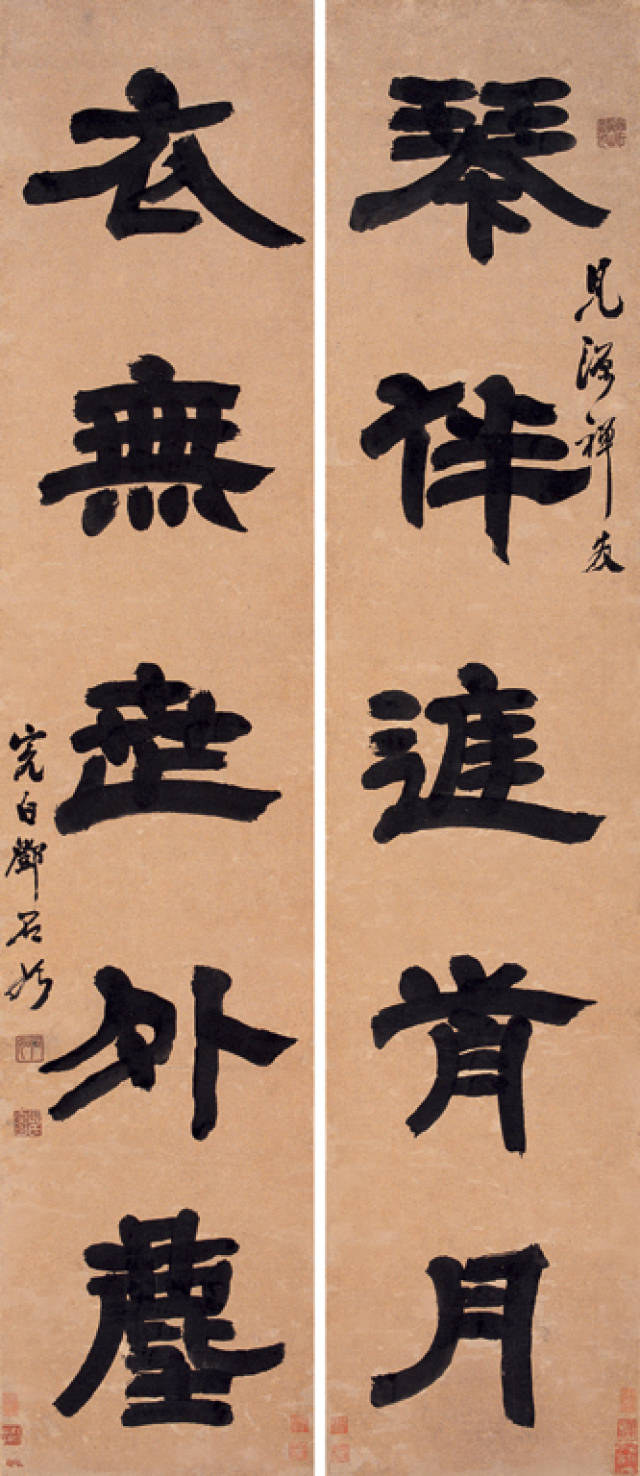 見禪友
琴伴進宵月
衣無世外塵
完白鄧石如